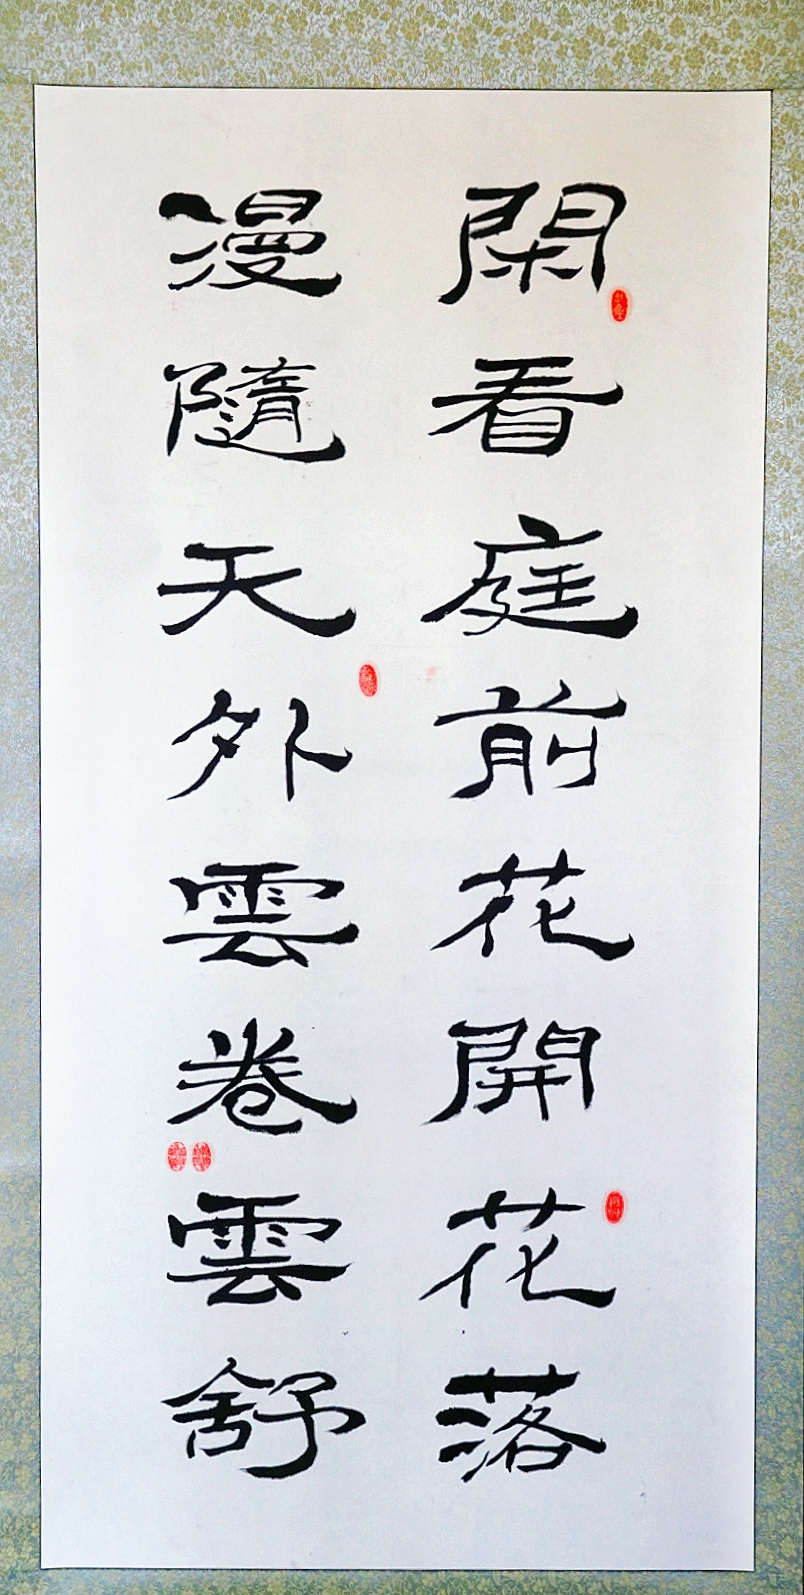 閑看庭前花開花落
漫隨天外雲卷雲舒